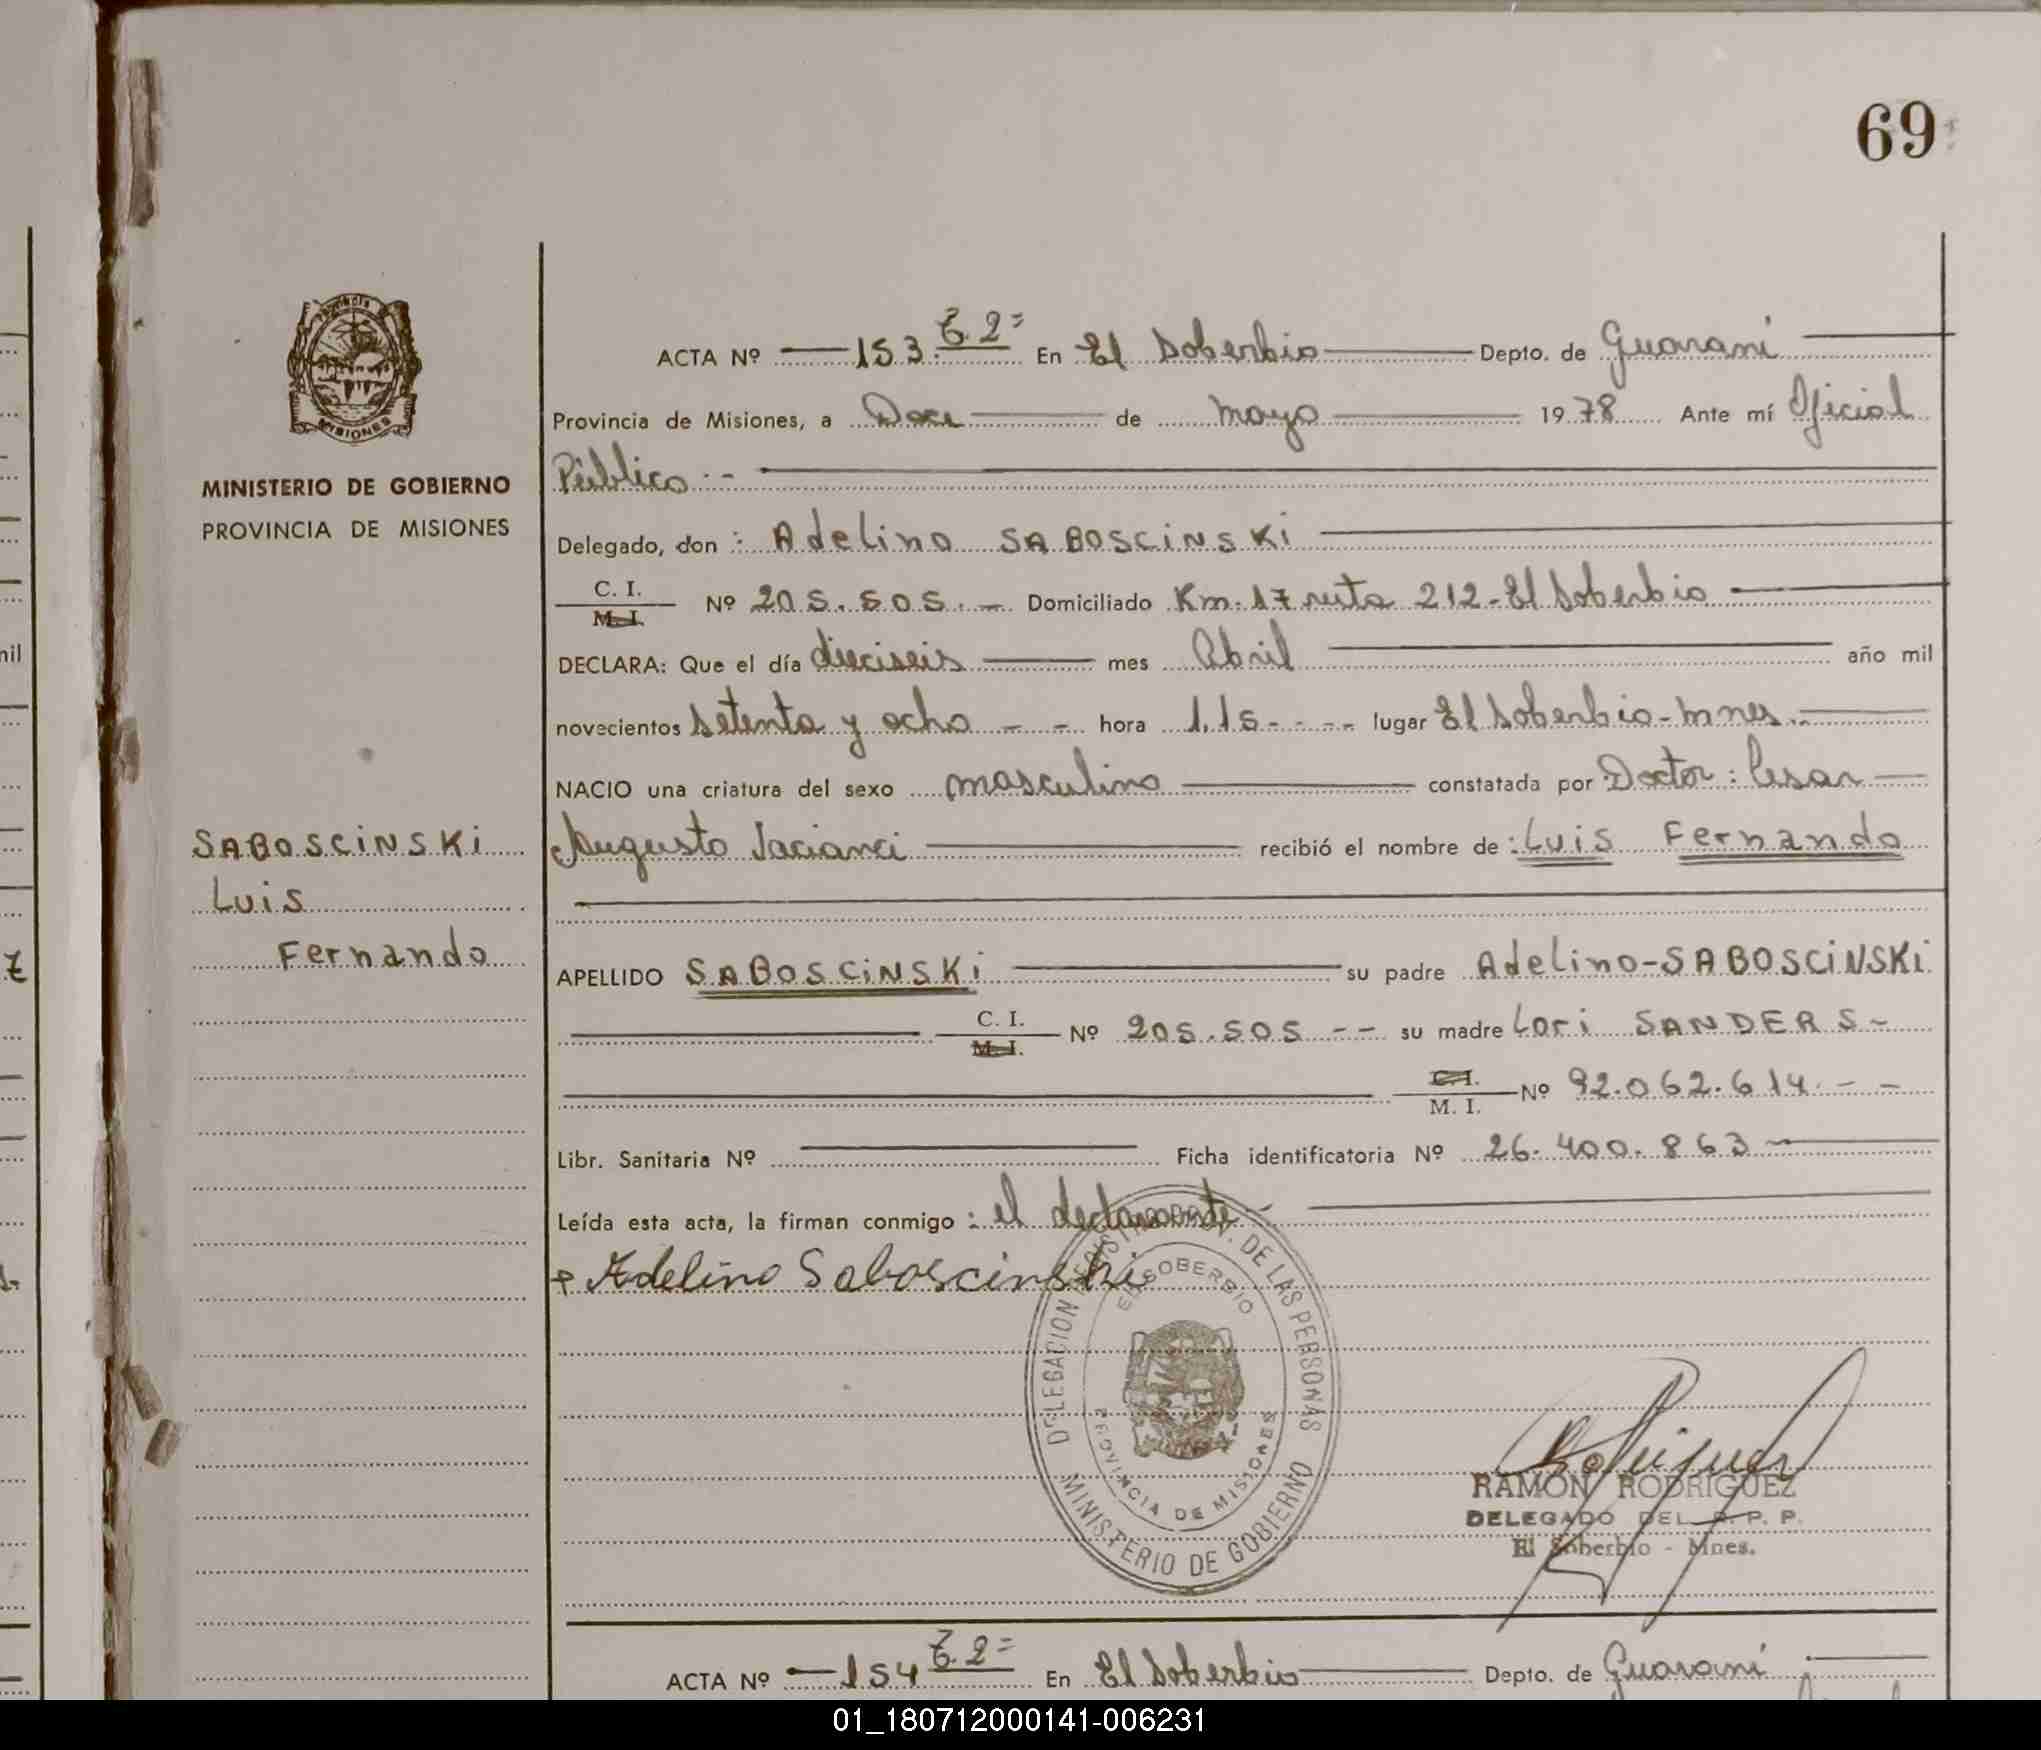 69
nil
PROVINCIA
MISIONES
MINISTERIO DE GOBIERNO
PROVINCIA DE MISIONES
SABOSCINSKI
Luis
Fernando
ACTA Nº 153 T. 2= En El Soberbio Depto. de Guarani
Provincia de Misiones, a Doce de mayo 1978 Ante mí Oficial
Público .--
Delegado, don : Adelino SABOSCINSKI
C. I.
M. I. Nº 205.505. - Domiciliado Km. 17 ruta 212 - El Soberbio
DECLARA: Que el día dieciseis mes Abril año mil
novecientos setenta y ocho - - hora 1.15 - - - - lugar El Soberbio - Mnes.
NACIO una criatura del sexo masculino constatada por Doctor : Cesar
Augusto recibió el nombre de : Luis Fernando
APELLIDO SABOSCINSKI su padre Adelino - SABOSCINSKI
C. I.
M. I. Nº 205.505 -- su madre Lori SANDERS -
C. I.
M. I. Nº 92.062.614. - -
Libr. Sanitaria Nº Ficha identificatoria Nº 26.400.863
Leída esta acta, la firman conmigo : el declarante -
Adelino Saboscinski
DELEGACION REGIST. PROV. DE LAS PERSONAS
EL SOBERBIO
PROVINCIA DE MISIONES
MINISTERIO DE GOBIERNO
RAMON RODRIGUEZ
DELEGADO DEL R. P. P.
El Soberbio - Mnes.
ACTA Nº 154 T. 2= En El Soberbio Depto. de Guarani
01_180712000141-006231